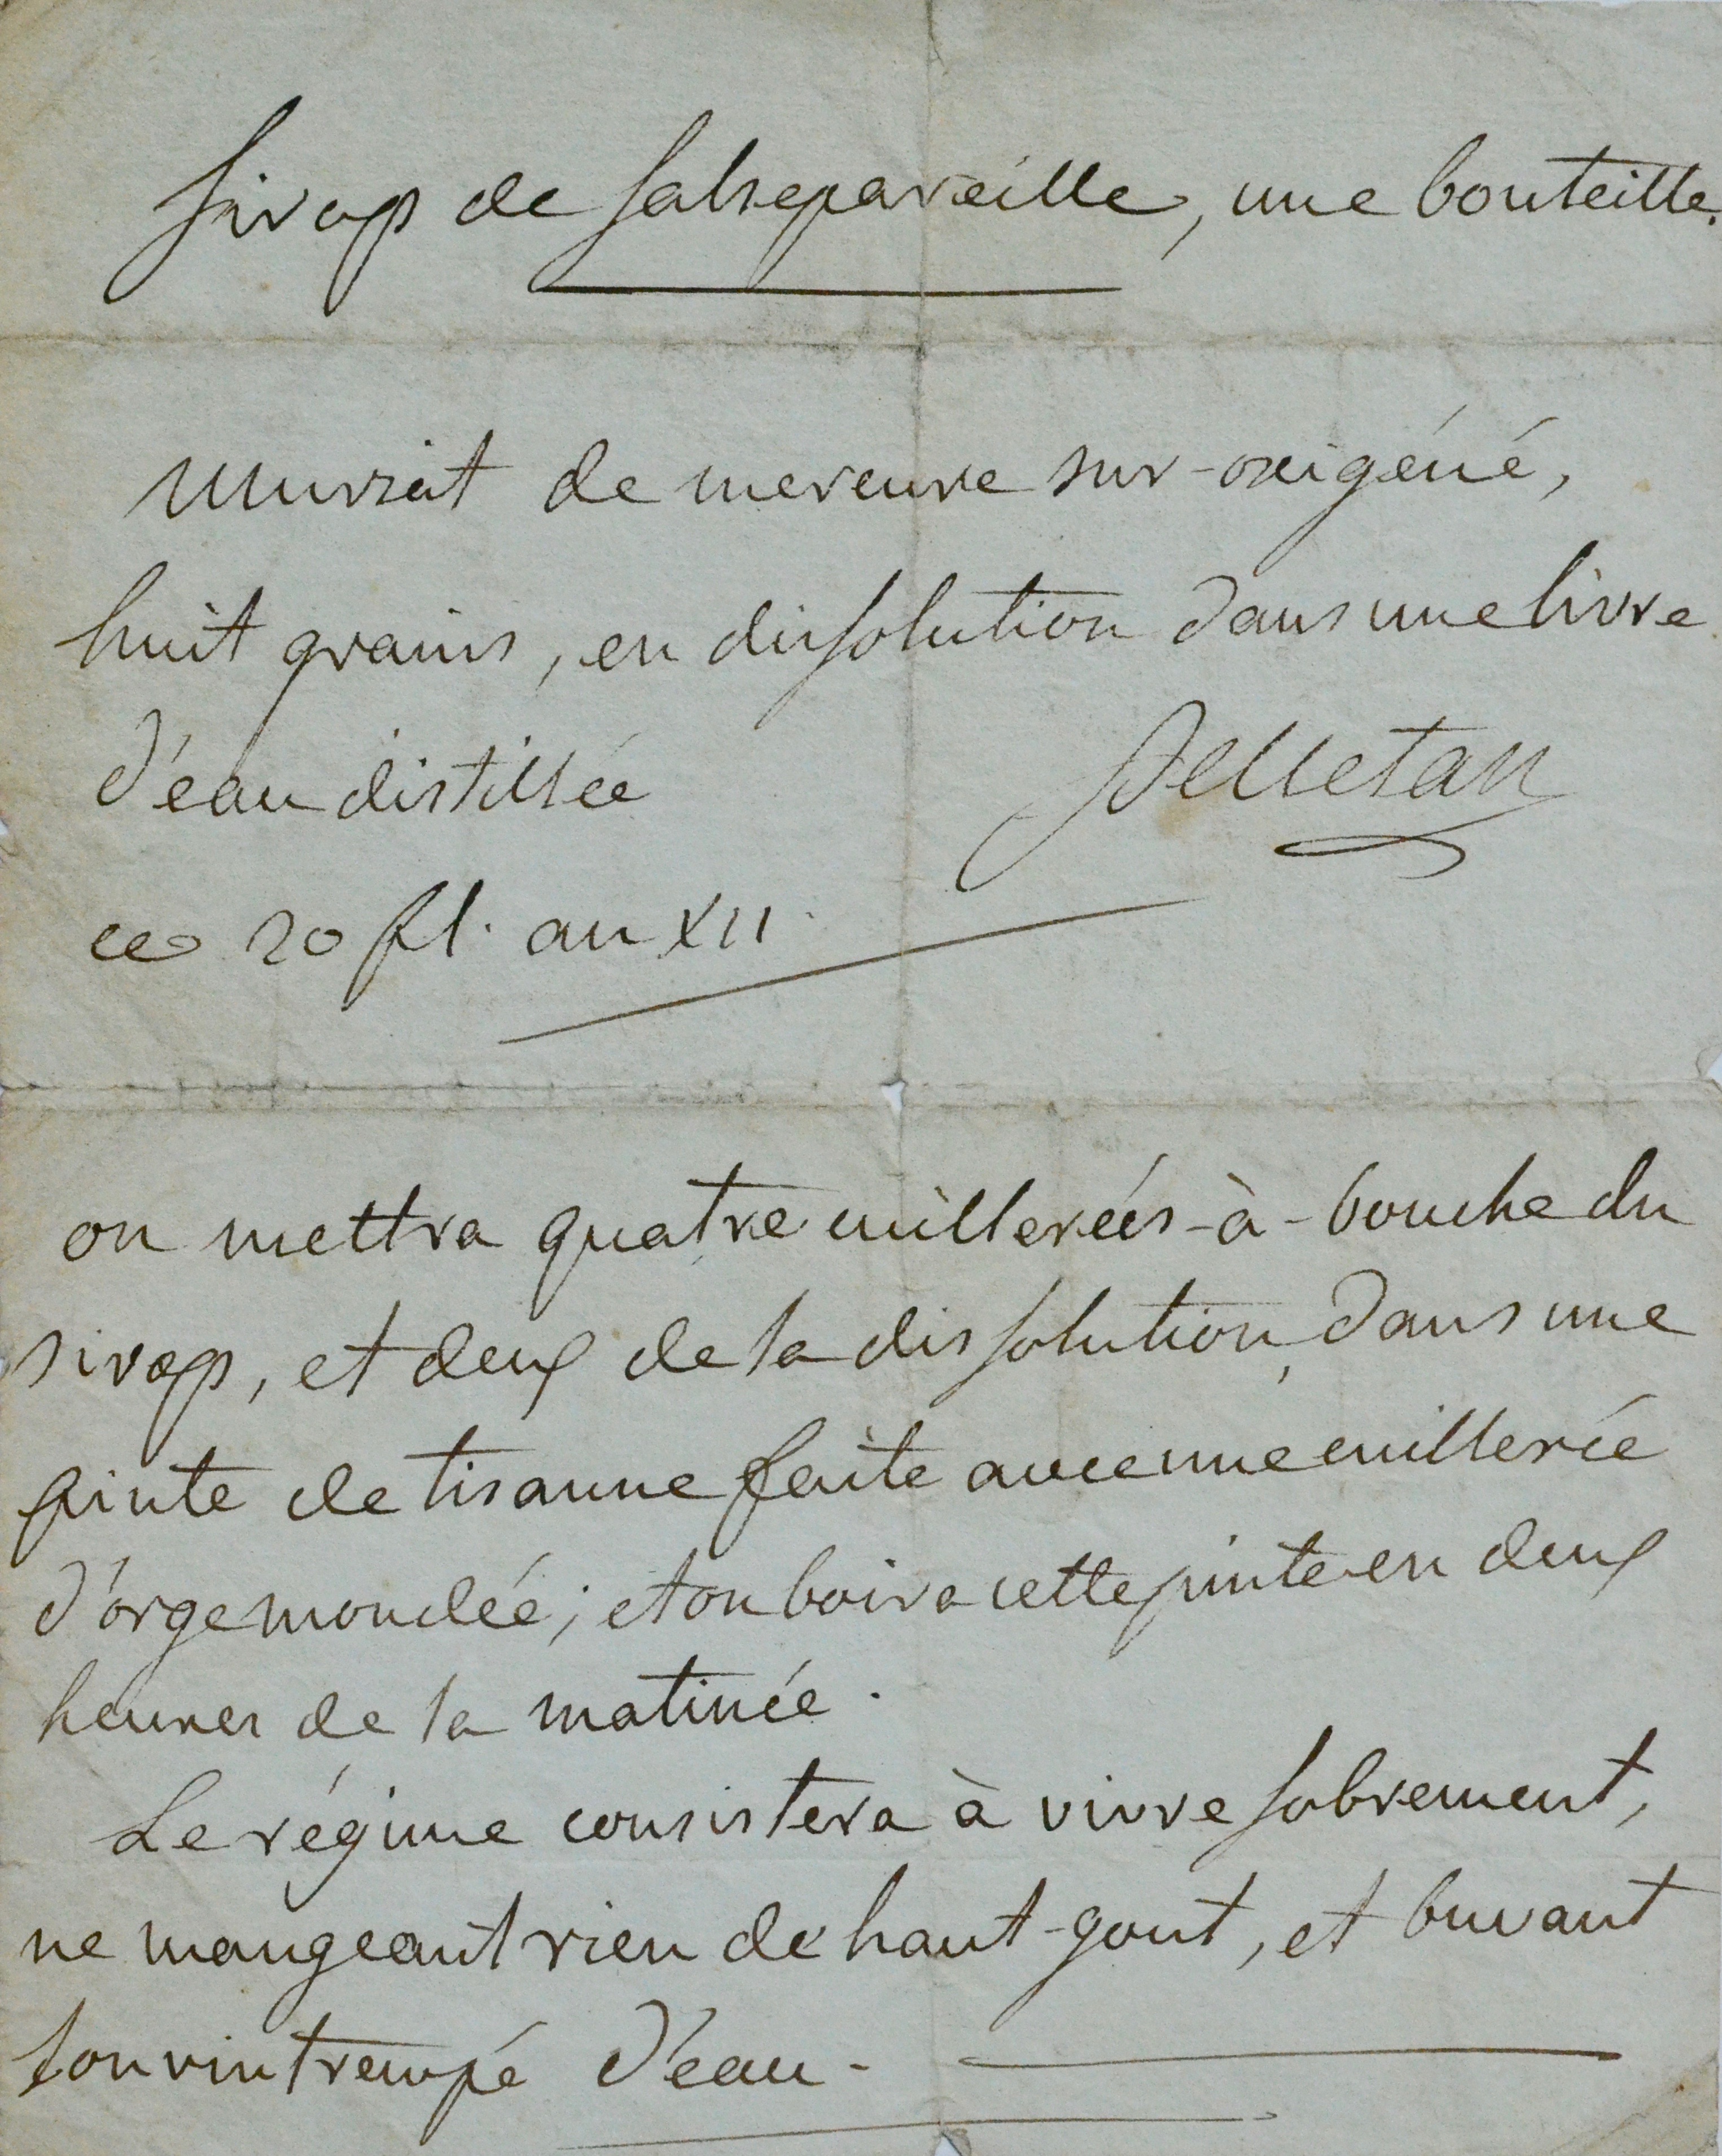 Sirop de Salsepareille, une bouteille.
Muriat de mercure sur-oxigéné,
huit grains, en dissolution dans une livre
d'eau distillée
Pelletan
ce 20 fl. an XII.
on mettra quatre cuillerées-à-bouche du
sirop, et deux de la dissolution, dans une
pinte de tisanne faite avec une cuillerée
d'orge mondée; et on boira cette pinte en deux
heures de la matinée.
Le régime consistera à vivre sobrement,
ne mangeant rien de haut-gout, et buvant
son vin trempé d'eau.